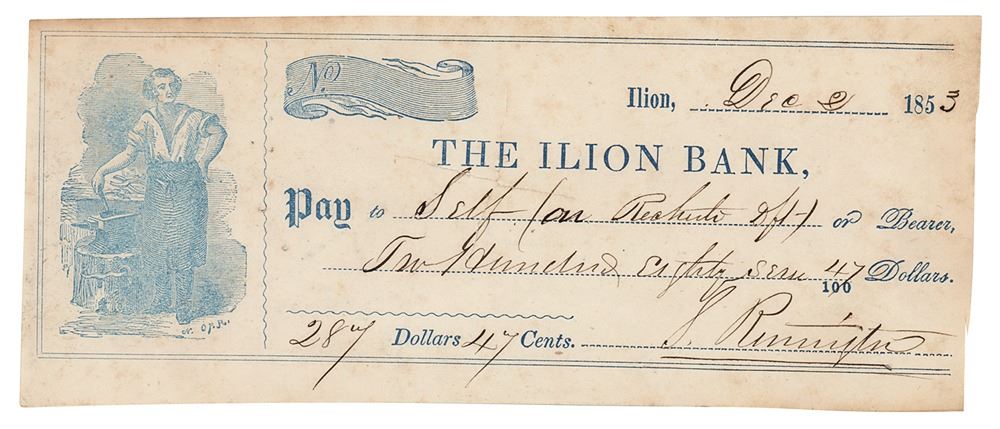 No.
Ilion, Dec 2 1853
THE ILION BANK,
Pay to Self (on Dft) or Bearer,
Two Hundred eighty seven 47/100 Dollars.
287 Dollars 47 Cents. Remington